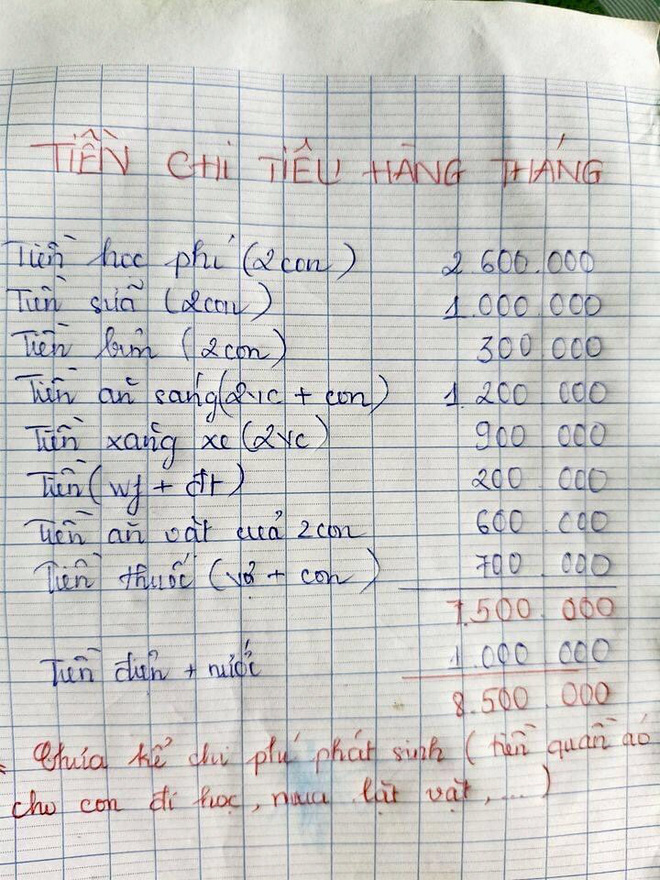 TIỀN CHI TIÊU HÀNG THÁNG
Tiền học phí (2con) 2.600.000
Tiền sữa (2con) 1.000.000
Tiền bỉm (2con) 300.000
Tiền ăn sáng (2vc + con) 1.200.000
Tiền xăng xe (2vc) 900.000
Tiền (wf + đt) 200.000
Tiền ăn vặt của 2con 600.000
Tiền thuốc (vợ + con) 700.000
7.500.000
Tiền điện + nước 1.000.000
8.500.000
Chưa kể chi phí phát sinh (tiền quần áo
cho con đi học, mua lặt vặt, ...)